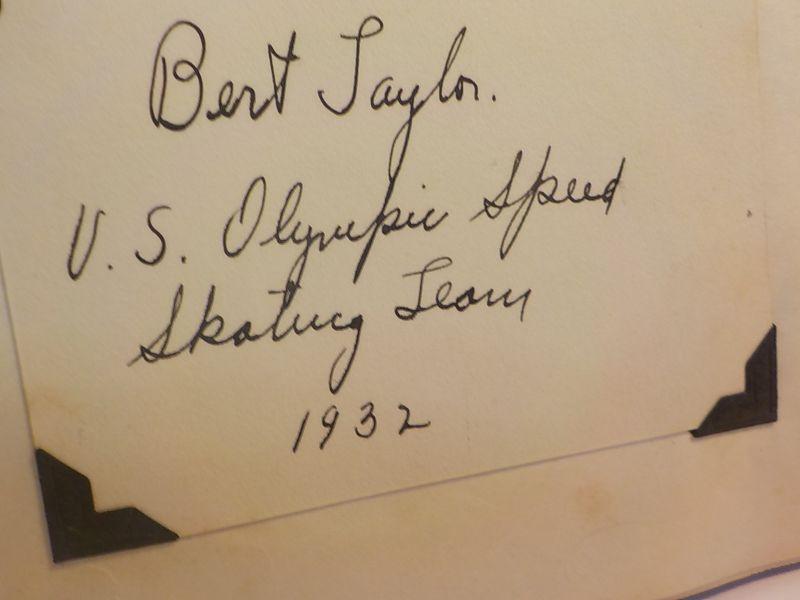 Bert Taylor.
U. S. Olympic Speed
Skating Team
1932